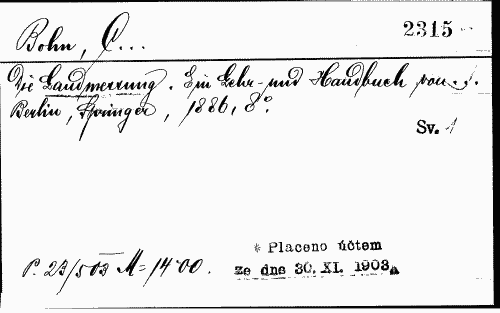 Bohn, C...
2315
Die Landmessung. Ein Lehr- und Handbuch von...
Berlin, Springer, 1886, 8°.
Sv. 1
P. 23/503 M= 14.00.
* Placeno účtem
ze dne 30. XI. 1903